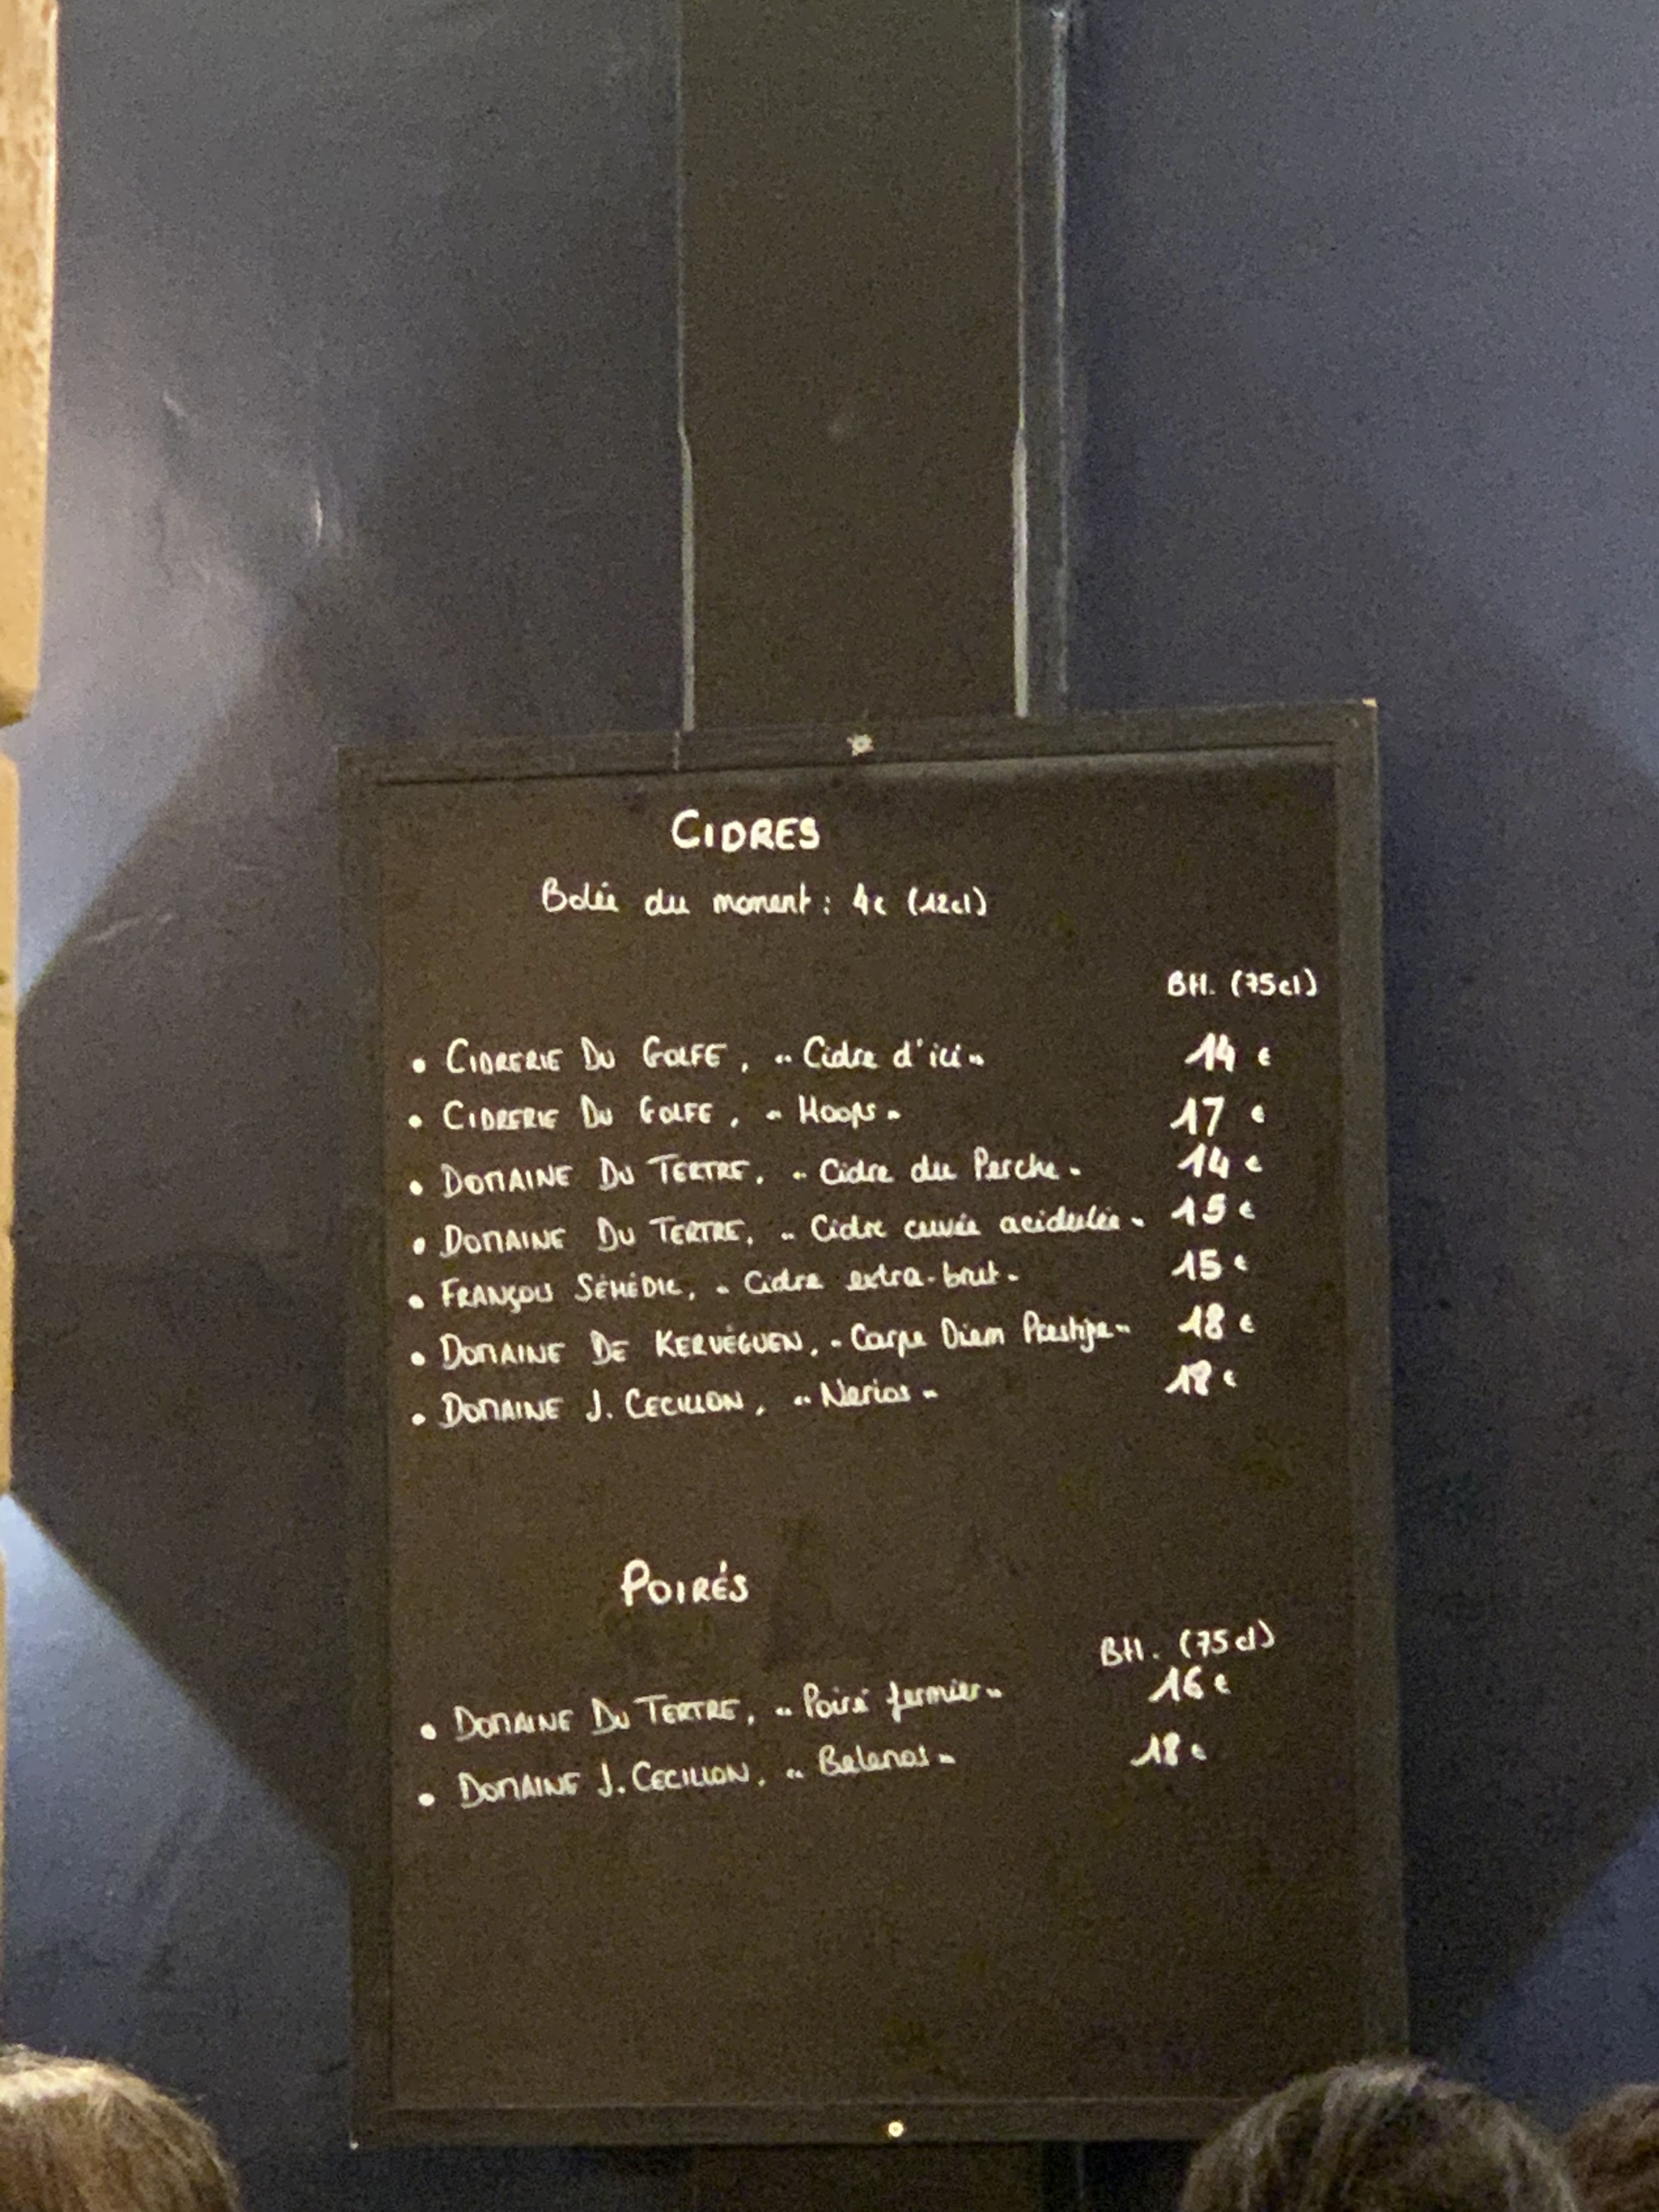 CIDRES
Bolée du moment : 4€ (12cl)
Btl. (75cl)
• CIDRERIE DU GOLFE, "Cidre d'ici" 14 €
• CIDRERIE DU GOLFE, "Hoops" 17 €
• DOMAINE DU TERTRE, "Cidre du Perche" 14 €
• DOMAINE DU TERTRE, "Cidre cuvée acidulée" 15 €
• FRANÇOIS SÉHÉDIC, "Cidre extra-brut" 15 €
• DOMAINE DE KERVÉGUEN, "Carpe Diem Prestige" 18 €
• DOMAINE J. CECILLON, "Nerios" 18 €
POIRÉS
Btl. (75cl)
• DOMAINE DU TERTRE, "Poiré fermier" 16 €
• DOMAINE J. CECILLON, "Belenos" 18 €